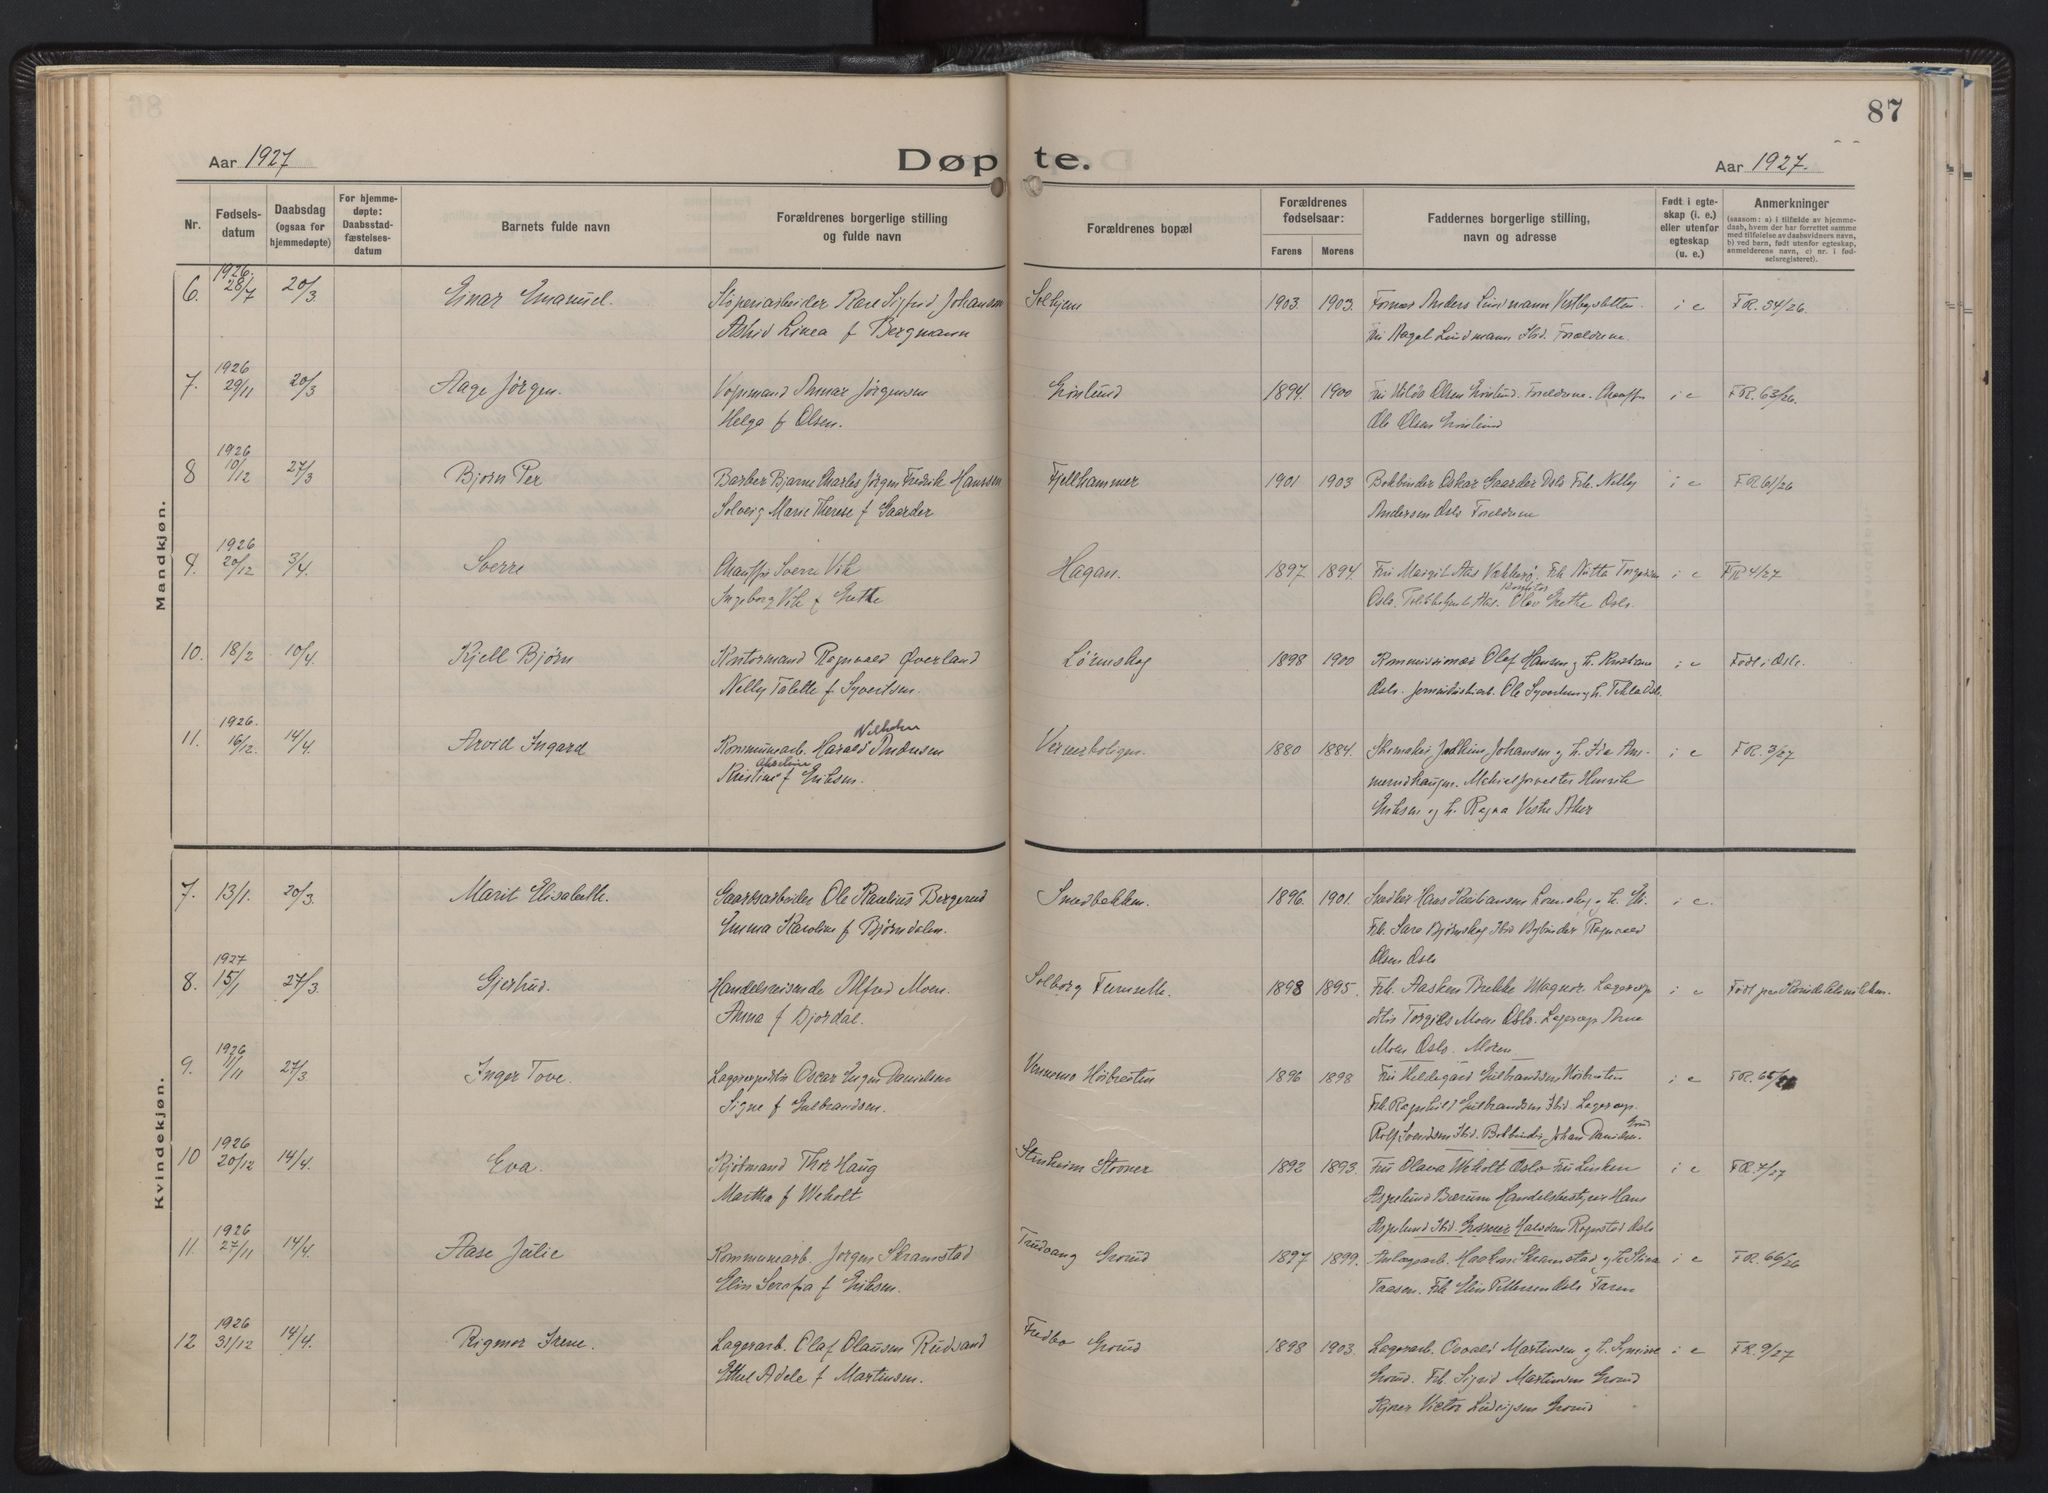 87
Aar 1927
Døpte.
Aar 1927.
Nr.
Fødsels-
datum
Daabsdag
(ogsaa for
hjemmedøpte)
For hjemme-
døpte:
Daabsstad-
fæstelses-
datum
Barnets fulde navn
Forældrenes borgerlige stilling
og fulde navn
Forældrenes bopæl
Forældrenes
fødselsaar:
Farens Morens
Faddernes borgerlige stilling,
navn og adresse
Født i egte-
skap (i. e.)
eller utenfor
egteskap
(u. e.)
Anmerkninger
(saasom: a) i tilfælde av hjemme-
daab, hvem der har forrettet samme
med tilføielse av daabsvidners navn,
b) ved barn, født utenfor egteskap,
anmelderens navn, c) nr. i fød-
selsregisteret).
Mandkjøn.
1926.
6. 28/7 20/3 Einar Emanuel. Karl Sigfrid Johansen Solhjem 1903. 1903. Anders Lindmann i e F R. 54/26.
Astrid Linea f Bergmann Lindmann Ibid. Forældrene.
1926
7. 29/11 20/3 Aage Jørgen. Vognmand Jørgensen Grønlund 1894. 1900 Olsen Grønlund. Forældrene. i e F.R. 63/26.
Helga f Olsen. Ole Olsen Grønlund
1926
8 10/12 27/3 Bjørn Per Barber Bjarne Charles Jørgen Fredrik Hanssen Fjellhammer 1901 1903 Bokbinder Oskar Gaarder Oslo Frk. Nelly i e F R 61/26
Solveig Marie Therese f Gaarder Andersen Oslo Forældrene
1926
9. 20/12 3/4. Sverre Chauffør Sverre Vik Hagan. 1897 1894. Fru Margit Aas Frk i e F R 4/27
Ingeborg Vik f Grette Oslo. Aas. Olav Grette Oslo.
10. 18/2 10/4. Kjell Bjørn Kontormand Ragnvald Øverland Lørenskog 1898 1900 Kommissionær Olaf Hansen og h. i e Født i Oslo.
Nelly Talette f Syvertsen. Oslo. Ole Syvertsen og h. Tekla Oslo
1926. Vilhelm
11. 16/12. 14/4. Arvid Ingard Kommunearb. Harald Andersen 1880 1884. Johansen og h. i e F R. 3/27
Kristine f Eriksen. Henrik
Eriksen og h. Ragna Vestre Aker
Kvindekjøn.
7. 13/1. 20/3. Marit Elisabeth. Gaardsarbeider Ole Paulius Bergerud Smedbakken. 1896. 1901. Snedker Hans Kristiansen Lørenskog og h. i e.
Emma Karoline f Bjørndalen. Frk. Sara Bjørnskog Ibid Ragnvald
Olsen Oslo
1927
8. 15/1 27/3. Gjertrud. Handelsreisende Alfred Moen. Solborg 1898 1895. Frk. Aasken Brekke i e Født paa
Anna f Djordal. Torgils Moen Oslo. Arne
Moen Oslo. Moren
1926
9. 11/11 27/3. Inger Tove. Oscar Danielsen Høibraaten 1896 1898 Fru Hildegard Gulbrandsen Høibraaten i e F R. 65/26
Signe f Gulbrandsen. Frk. Ragnhild Gulbrandsen Ibid. Lagerexp.
Rolf Svendsen Ibid. Bokbinder Johan Danielsen Grorud
1926
10 20/12 14/4. Eva. Kjøbmand Thor Haug Stenheim Stovner 1892 1893. Fru Olava Weholt Oslo Fru i e F R. 7/27
Martha f Weholt Aspelund Bærum Handelsbestyrer Hans
Aspelund Ibid Grosserer Halvdan Rognstad Oslo
1926
11. 27/11 14/4. Aase Julie Kommunearb. Jørgen Skramstad Trudvang Grorud 1897 1899. Haakon Skramstad og h. i e F R. 66/26
Elin Serafia f Eriksen. Taasen. Frk Elin Pettersen Oslo Faren
1926
12 31/12 14/4. Rigmor Irene. Lagerarb. Olaf Olausen Rudsand Fredbo Grorud 1898 1903. Lagerarb. Osvald Martinsen og h. i e F R. 9/27
Ethel Adele f Martinsen. Grorud. Frk. Sigrid Martinsen Grorud
Victor Ludvigsen Grorud